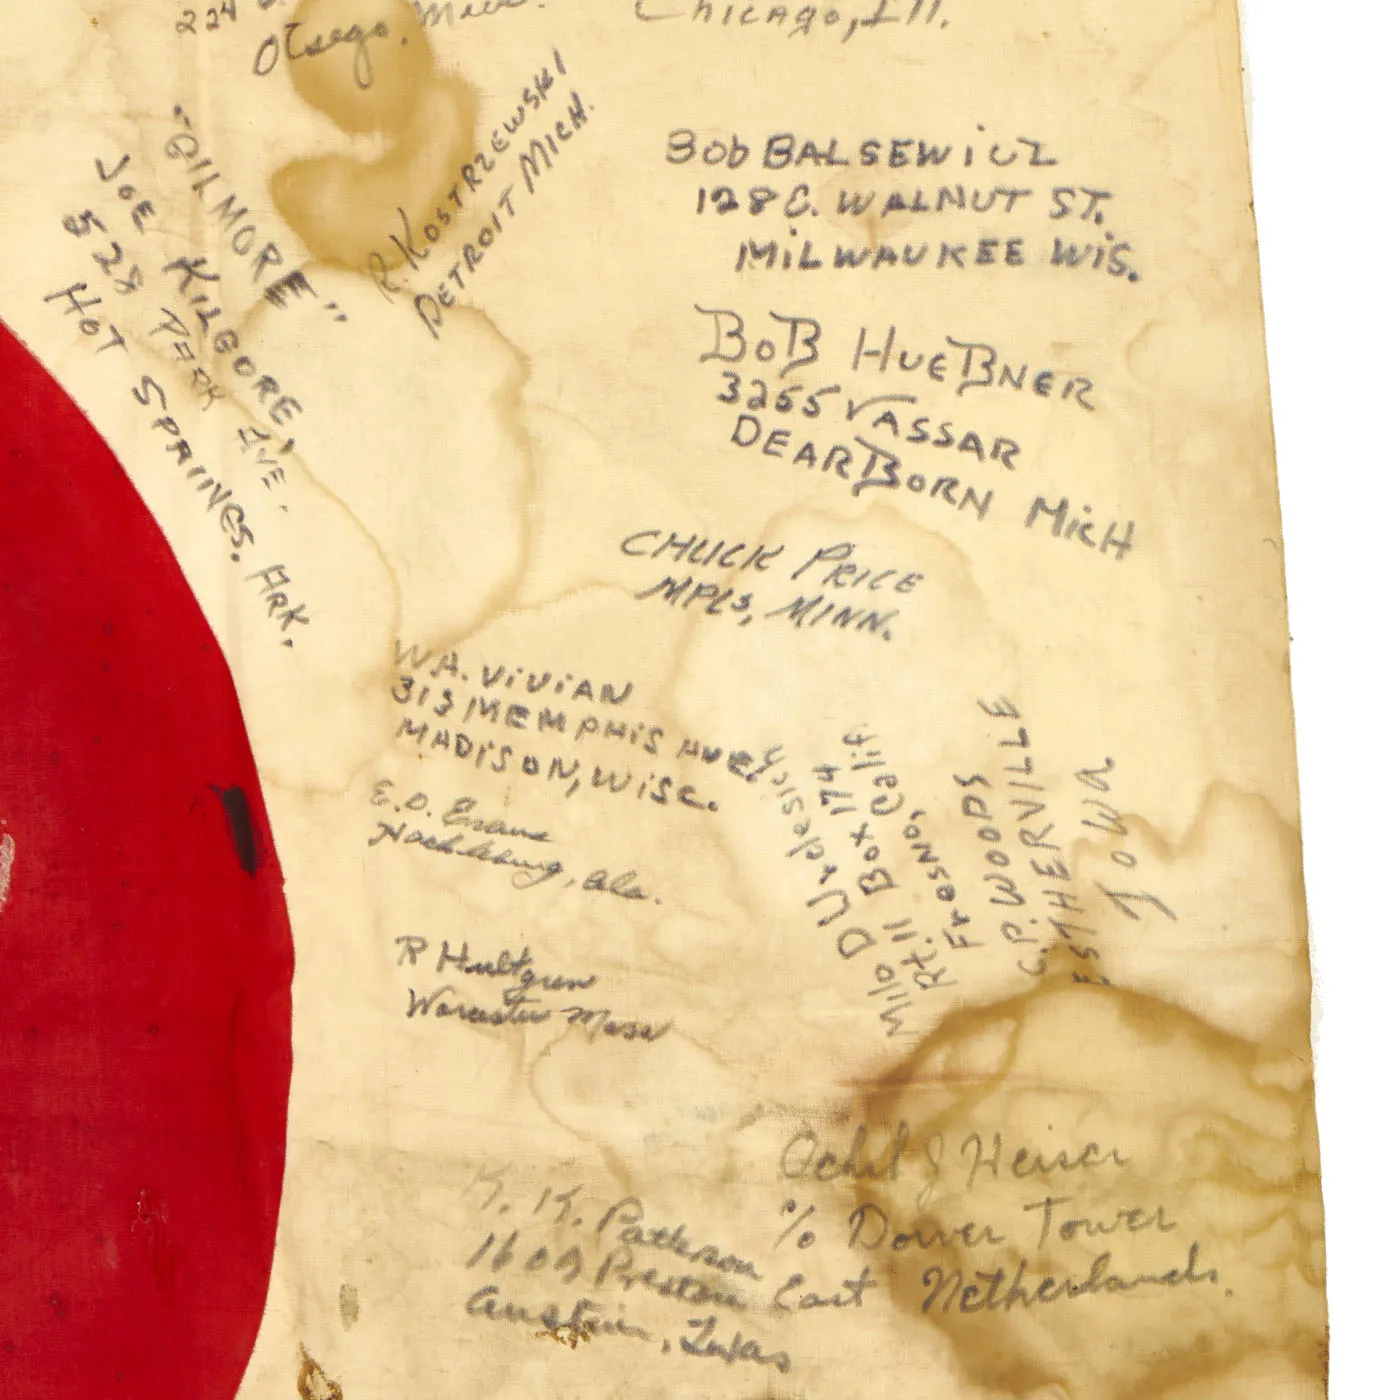 224
Otsego, Mich.
Chicago, Ill.
"GILMORE"
JOE KILGORE,
528 PARK AVE.
HOT SPRINGS, ARK.
R. KOSTRZEWSKI
DETROIT MICH.
BOB BALSEWICZ
WALNUT ST.
MILWAUKEE WIS.
BOB HUEBNER
3255 VASSAR
DEARBORN MICH
CHUCK PRICE
MPLS, MINN.
W.A. VIVIAN
313 MEMPHIS AVE.
MADISON, WISC.
E.O. Evans
Ala.
R Hultgren
Worcester Mass
Milo D
Rt. 11 Box 174
Fresno, Calif.
C.P. WOODS
ESTHERVILLE
Iowa
J Heiser
% Dower Tower
East Netherlands.
K. K. Patterson
Preston
Austin, Texas